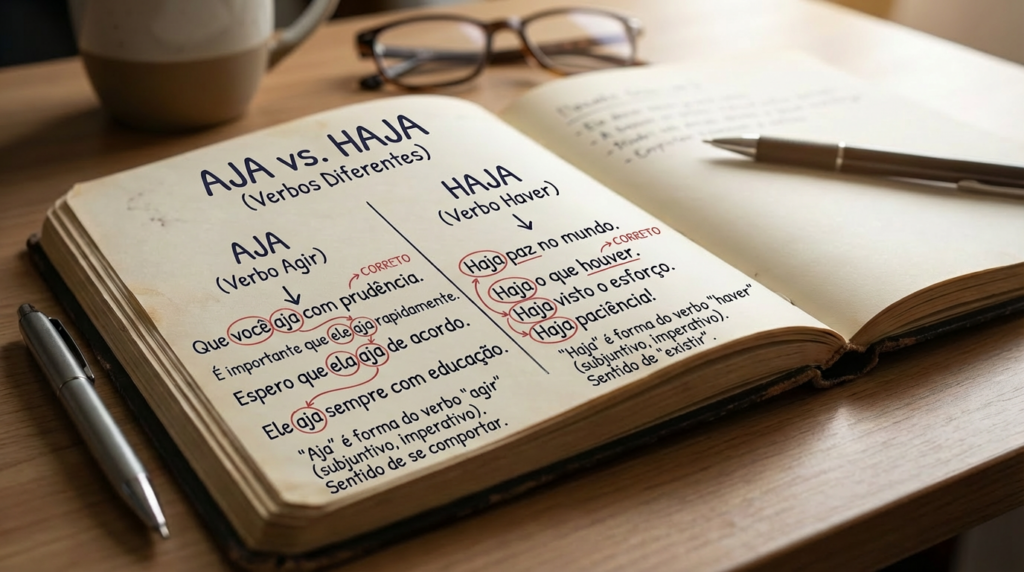 AJA vs. HAJA
(Verbos Diferentes)
AJA
(Verbo Agir)
CORRETO
Que você aja com prudência.
É importante que ele aja rapidamente.
Espero que ela aja de acordo.
Ele aja sempre com educação.
"Aja" é forma do verbo "agir"
(subjuntivo, imperativo).
Sentido de se comportar.
HAJA
(Verbo Haver)
Haja paz no mundo.
CORRETO
Haja o que houver.
Haja visto o esforço.
Haja paciência!
"Haja" é forma do verbo "haver"
(subjuntivo, imperativo).
Sentido de "existir".